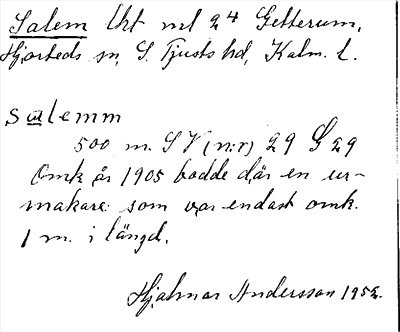 Salem lht vid 24 Getterum,
Hjorteds sn, S. Tjusts hd, Kalm. l.
salemm
500 m. SV (n:r) 29 S 29
Omk. år 1905 bodde där en ur-
makare som var endast omk.
1 m. i längd.
Hjalmar Andersson 1952.